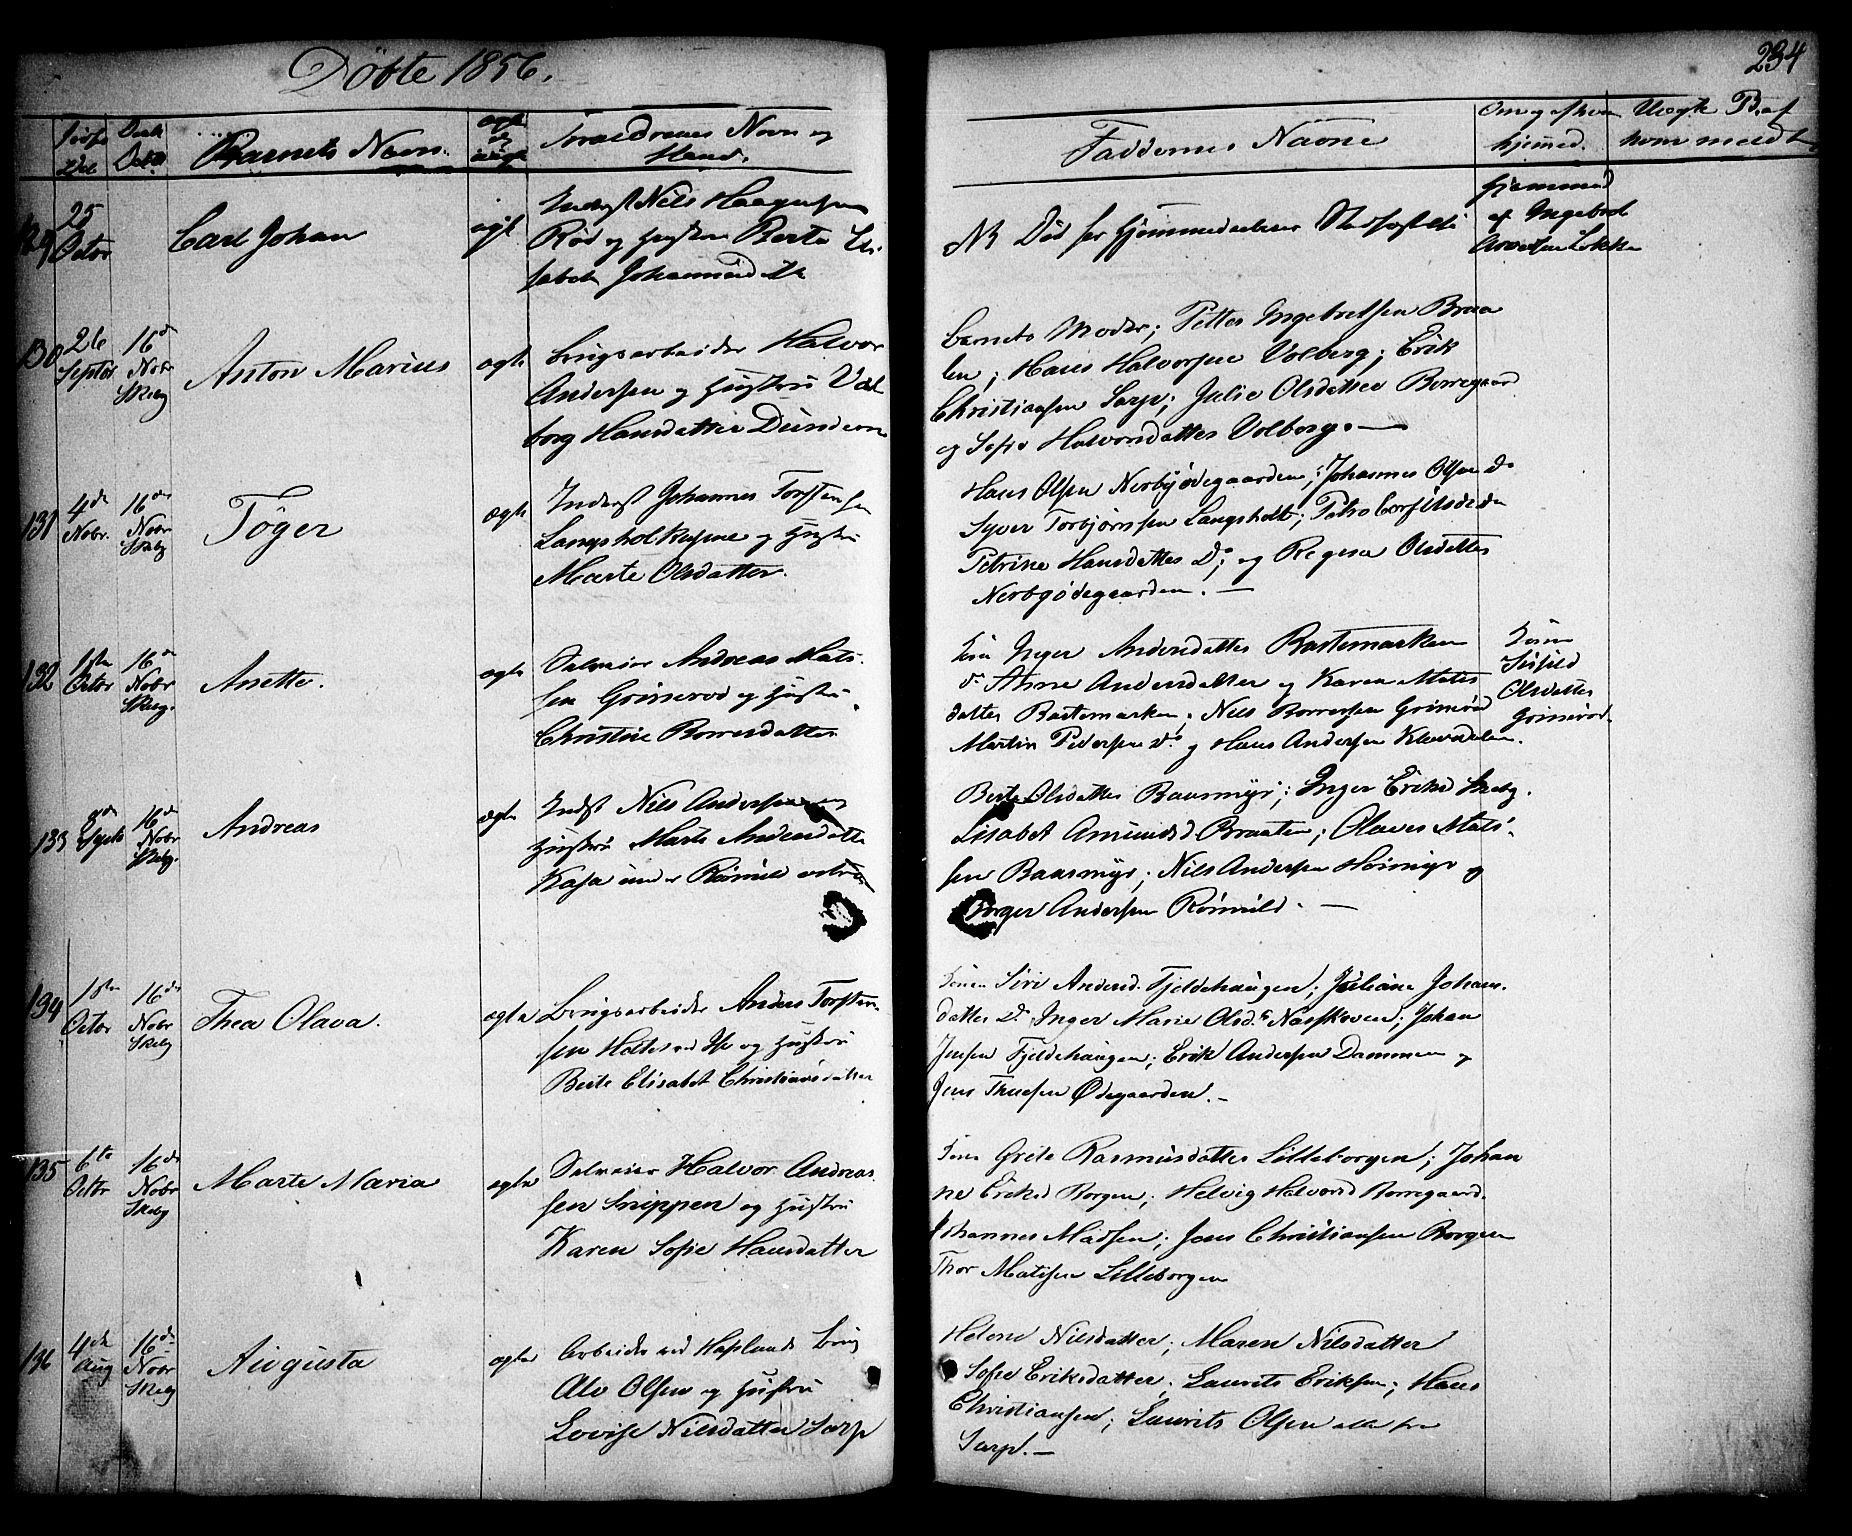 Döbte 1856.
234
Barnets Navn.
Faddernes Navne
129
25
Octor
Carl Johan
ægte
Inderst Nils Haagensen
Rød og Hustru Berte Eli-
sabeth Johannesd
NB Død før Hjemmedaabens Stadfæstelse
hjemmed
af Ingebret
130
26
Septbr
16de
Novbr
Skeby
Anton Marius
ægte
Brugsarbeider Halvor
Andersen og Hustru Val-
borg Hansdatter
Barnets Moder; Petter Ingebretsen Braa
len; Hans Halvorsen Volberg; Erik
Christiansen Sarp; Julie Olsdatter Borregaard
og Sofie Halvorsdatter Volberg. —
131
4de
Nobr.
16de
Nobr
Skeby
Töger
ægte
Inderst Johannes Torstensen
Langsholt og Hustru
Marte Olsdatter.
Hans Olsen Nerbyødegaarden; Johannes Olsen do
Syver Torbjørnsen Langsholt;
Petrine Hansdatter Do; og Regine Olsdatter
Nerbyødegaarden. —
132
1ste
Octor
16de
Nobr
Skeby.
Anette.
ægte
Selveier Andreas Mats-
sen Grimerød og Hustru
Christine Borresdatter
Inger Andersdatter Rastemarken
do Anne Andersdatter og Karen Mats
datter Rastemarken; Nils Borresen Grimerød
Martin Pedersen do og Hans Andersen
Olsdatter
Grimerød.
133
16de
Nobr
Skeby.
Andreas
ægte
Indst Nils Andersen og
Hustru Marte Andersdatter
Berte Olsdatter Baasmyr; Inger Eriksd Skeby.
Lisabet Amundsd Braaten; Olaves Mats-
sen Baasmyr; Nils Andersen Heimyr og
Andersen Römüld. —
134
1ste
Octor
16de
Nobr
Skeby
Thea Olava.
ægte
Brugsarbeider Anders Torsten-
sen og Hustru
Berte Elisabet Christiansdatter
Siri Andersd. Fjeldehaugen; Juliane Johans-
datter Do Inger Marie Olsd. Næsskoven; Johan
Jensen Fjeldehaugen; Erik Andersen Dammen og
Jens Thuesen Ødegaarden. —
135
6te
Octbr
16de
Nobr
Skeby
Marte Maria
ægte
Selveier Halvor Andreas
sen Snippen og Hustru
Karen Sofie Hansdatter
Grete Rasmusdatter Lilleborgen; Johan
ne Eriksd Borgen; Helvig Halvorsd Borregaard.
Johannes Madsen; Jens Christiansen Borgen
Thor Matisen Lilleborgen
136
4de
Aug
16de
Nobr
Skeby
Augusta
ægte
Arbeider ved Haflunds Brug
Alv Olsen og Hustru
Lovise Nilsdatter Sarp
Helene Nilsdatter; Maren Nilsdatter
Sofie Eriksdatter; Laurits Eriksen; Hans
Christiansen; Laurits Olsen alle fra
Sarp. —